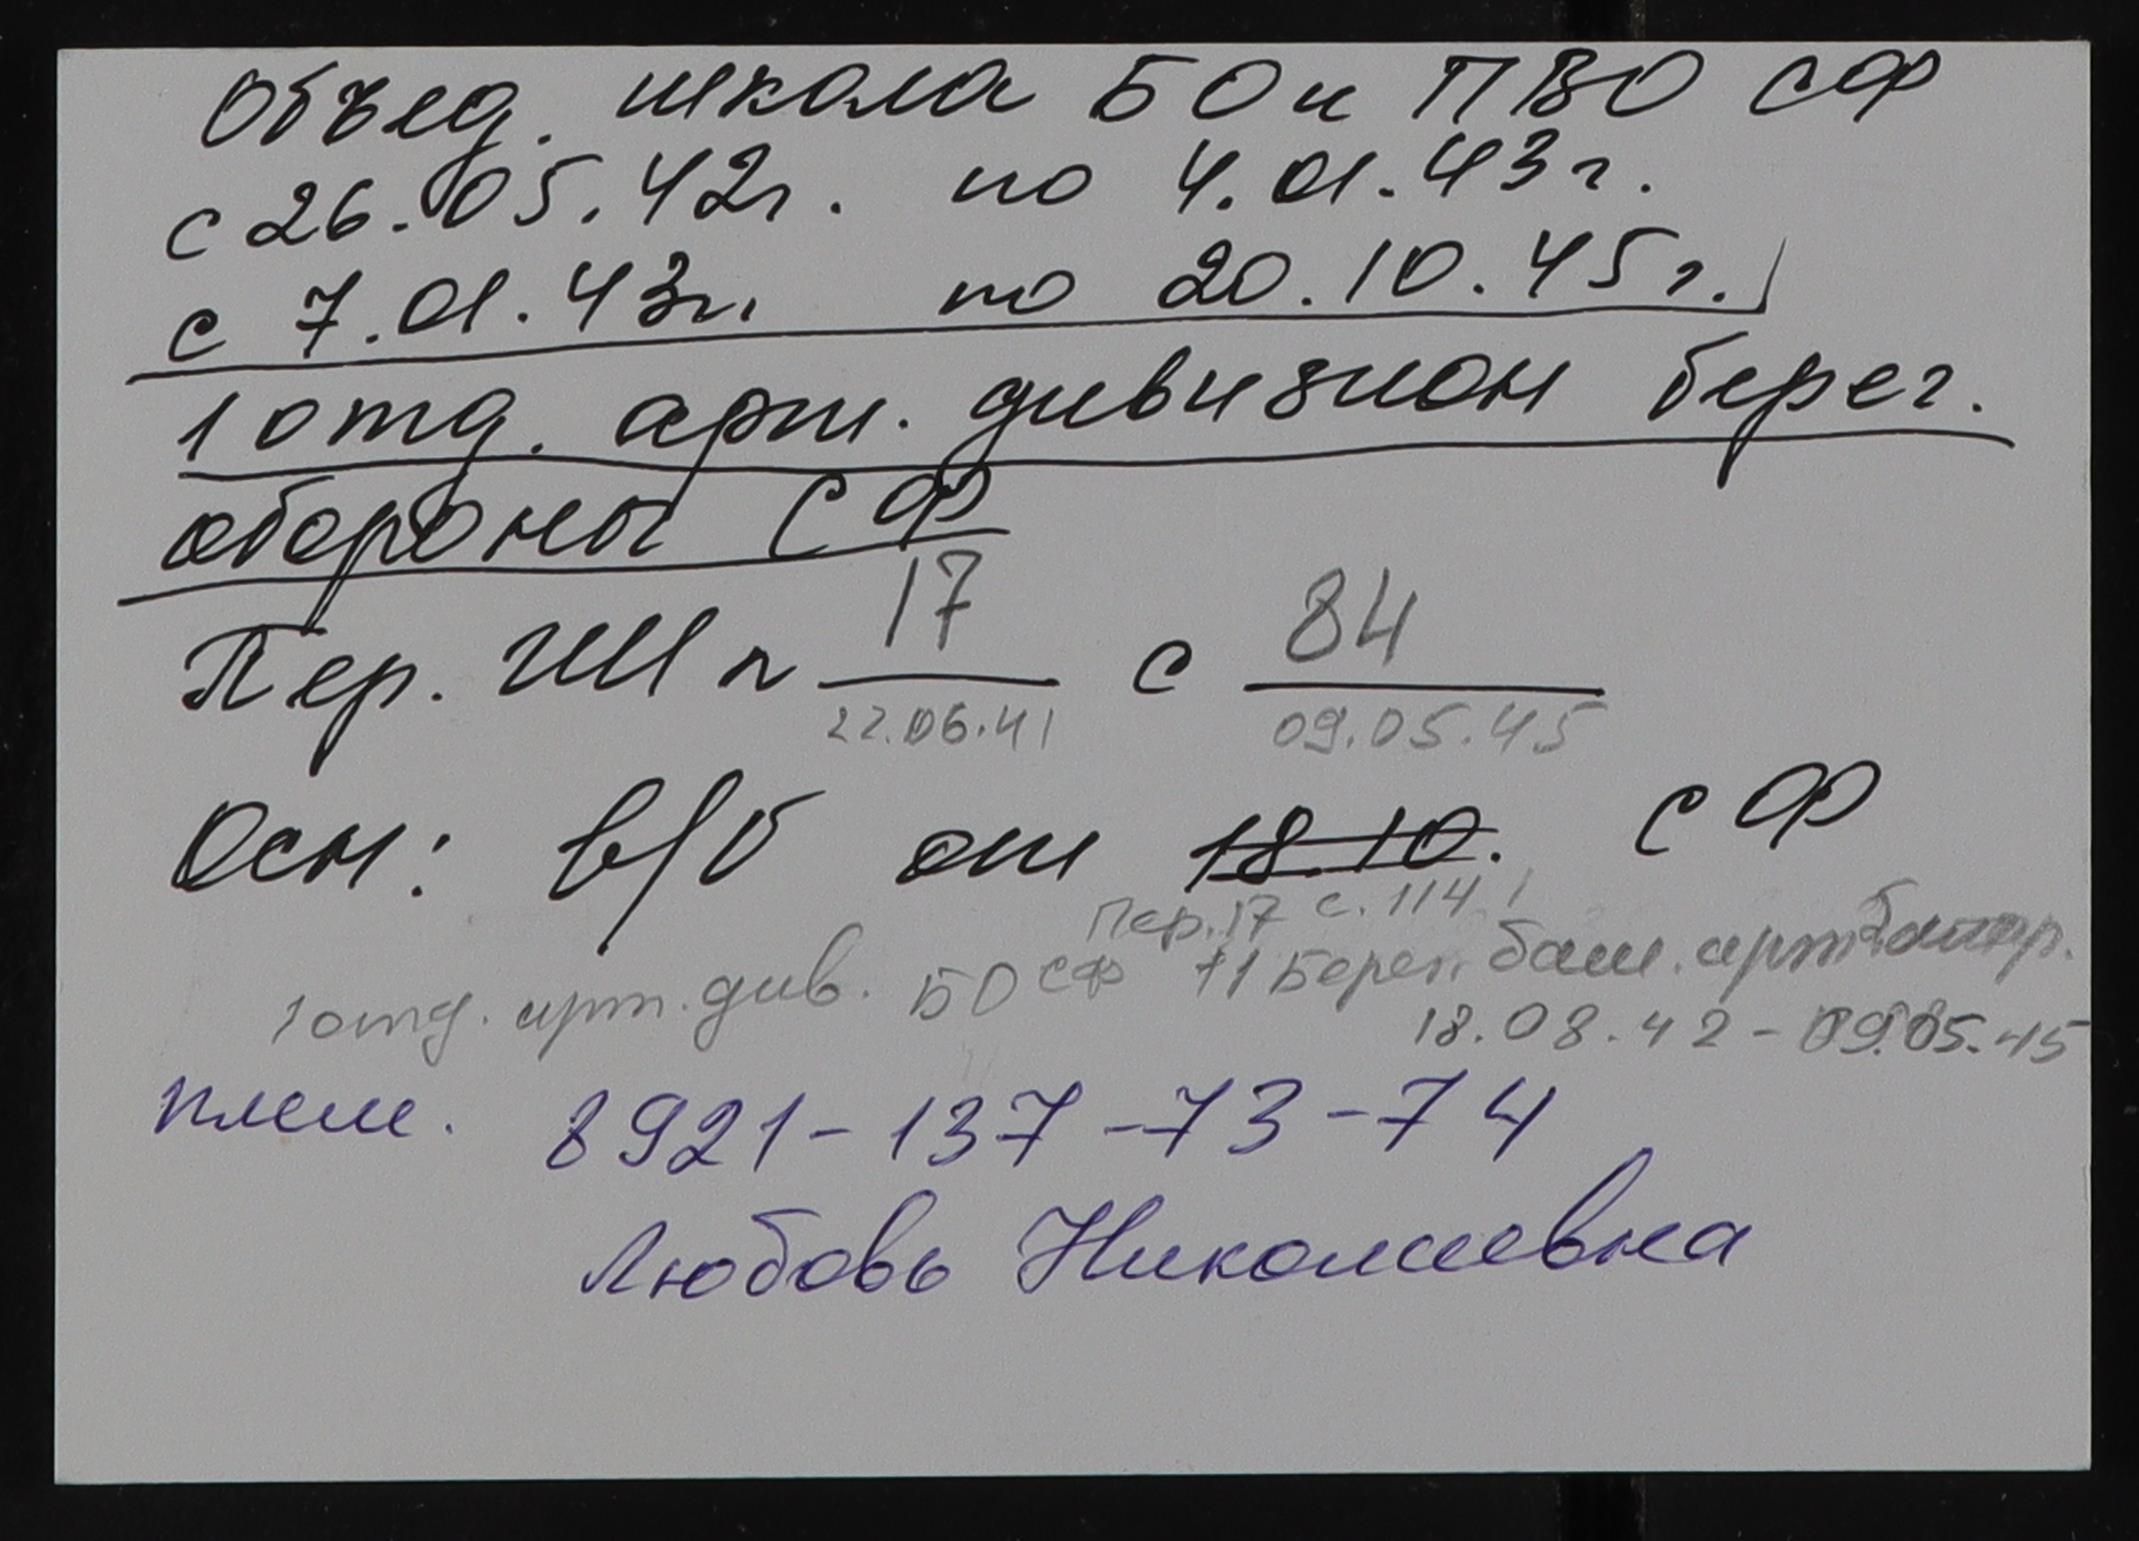 Объед. школа БО и ПВО СФ
с 26.05.42г. по 4.01.43г.
с 7.01.43г. по 20.10.45г.
1 отд. арт. дивизион берег.
обороны СФ
17 84
Пер. ГШ № с
22.06.41 09.05.45
Осн: в/б от 18.10. СФ
Пер.17 с.114
1 отд. арт. див. БО СФ 71 Берег. баш. арт батар.
18.08.42 - 09.05.45
плем. 8921-137-73-74
Любовь Николаевна